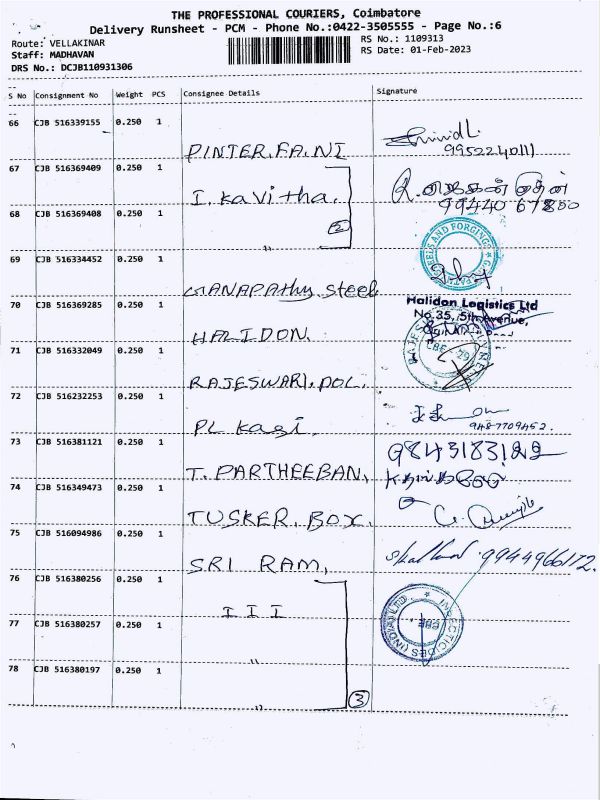 THE PROFESSIONAL COURIERS, Coimbatore
Delivery Runsheet - PCM - Phone No.:0422-3505555 - Page No.:6
Route: VELLAKINAR
RS No.: 1109313
Staff: MADHAVAN
RS Date: 01-Feb-2023
DRS No.: DCJB110931306
S No Consignment No Weight PCS Consignee Details Signature
66 CJB 516339155 0.250 1
PINTER.FA.NI
9952240111
67 CJB 516369409 0.250 1
I. Kavitha.
99440 67850
68 CJB 516369408 0.250 1
" 2
STEELS AND FORGINGS
69 CJB 516334452 0.250 1
GANAPAthy Steel
70 CJB 516369285 0.250 1
Halidon Logistics Ltd
No.35, 5th Avenue,
HALIDON.
71 CJB 516332049 0.250 1
CBE - 29
RAJESWARI. POL.
72 CJB 516232253 0.250 1
PL Kasi.
9487709452.
73 CJB 516381121 0.250 1
9843183122
T. PARTHEEBAN,
74 CJB 516349473 0.250 1
TUSKER. BOX.
75 CJB 516094986 0.250 1
SRI RAM,
9944966172.
76 CJB 516380256 0.250 1
I I I
INSECTICIDES (INDIA) LTD.
77 CJB 516380257 0.250 1
"
78 CJB 516380197 0.250 1
" 3